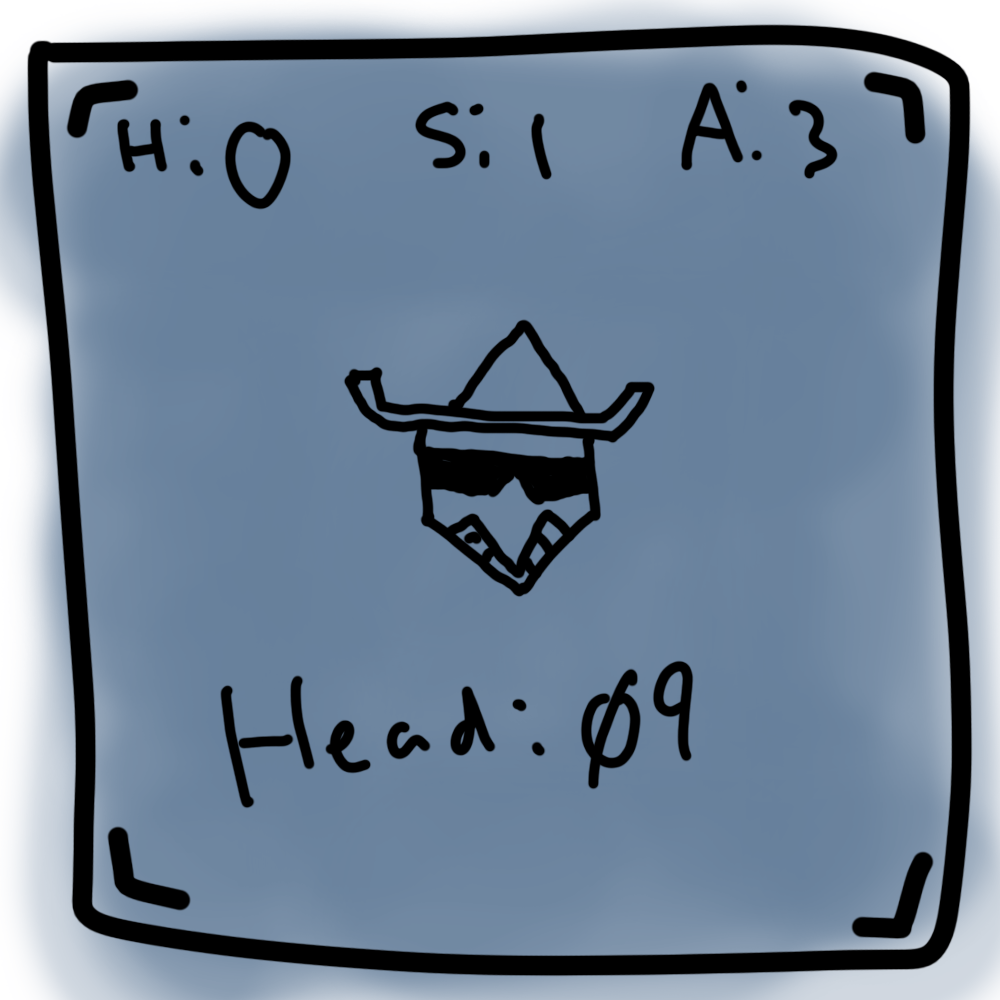 H:0 S:1 A:3
Head:09